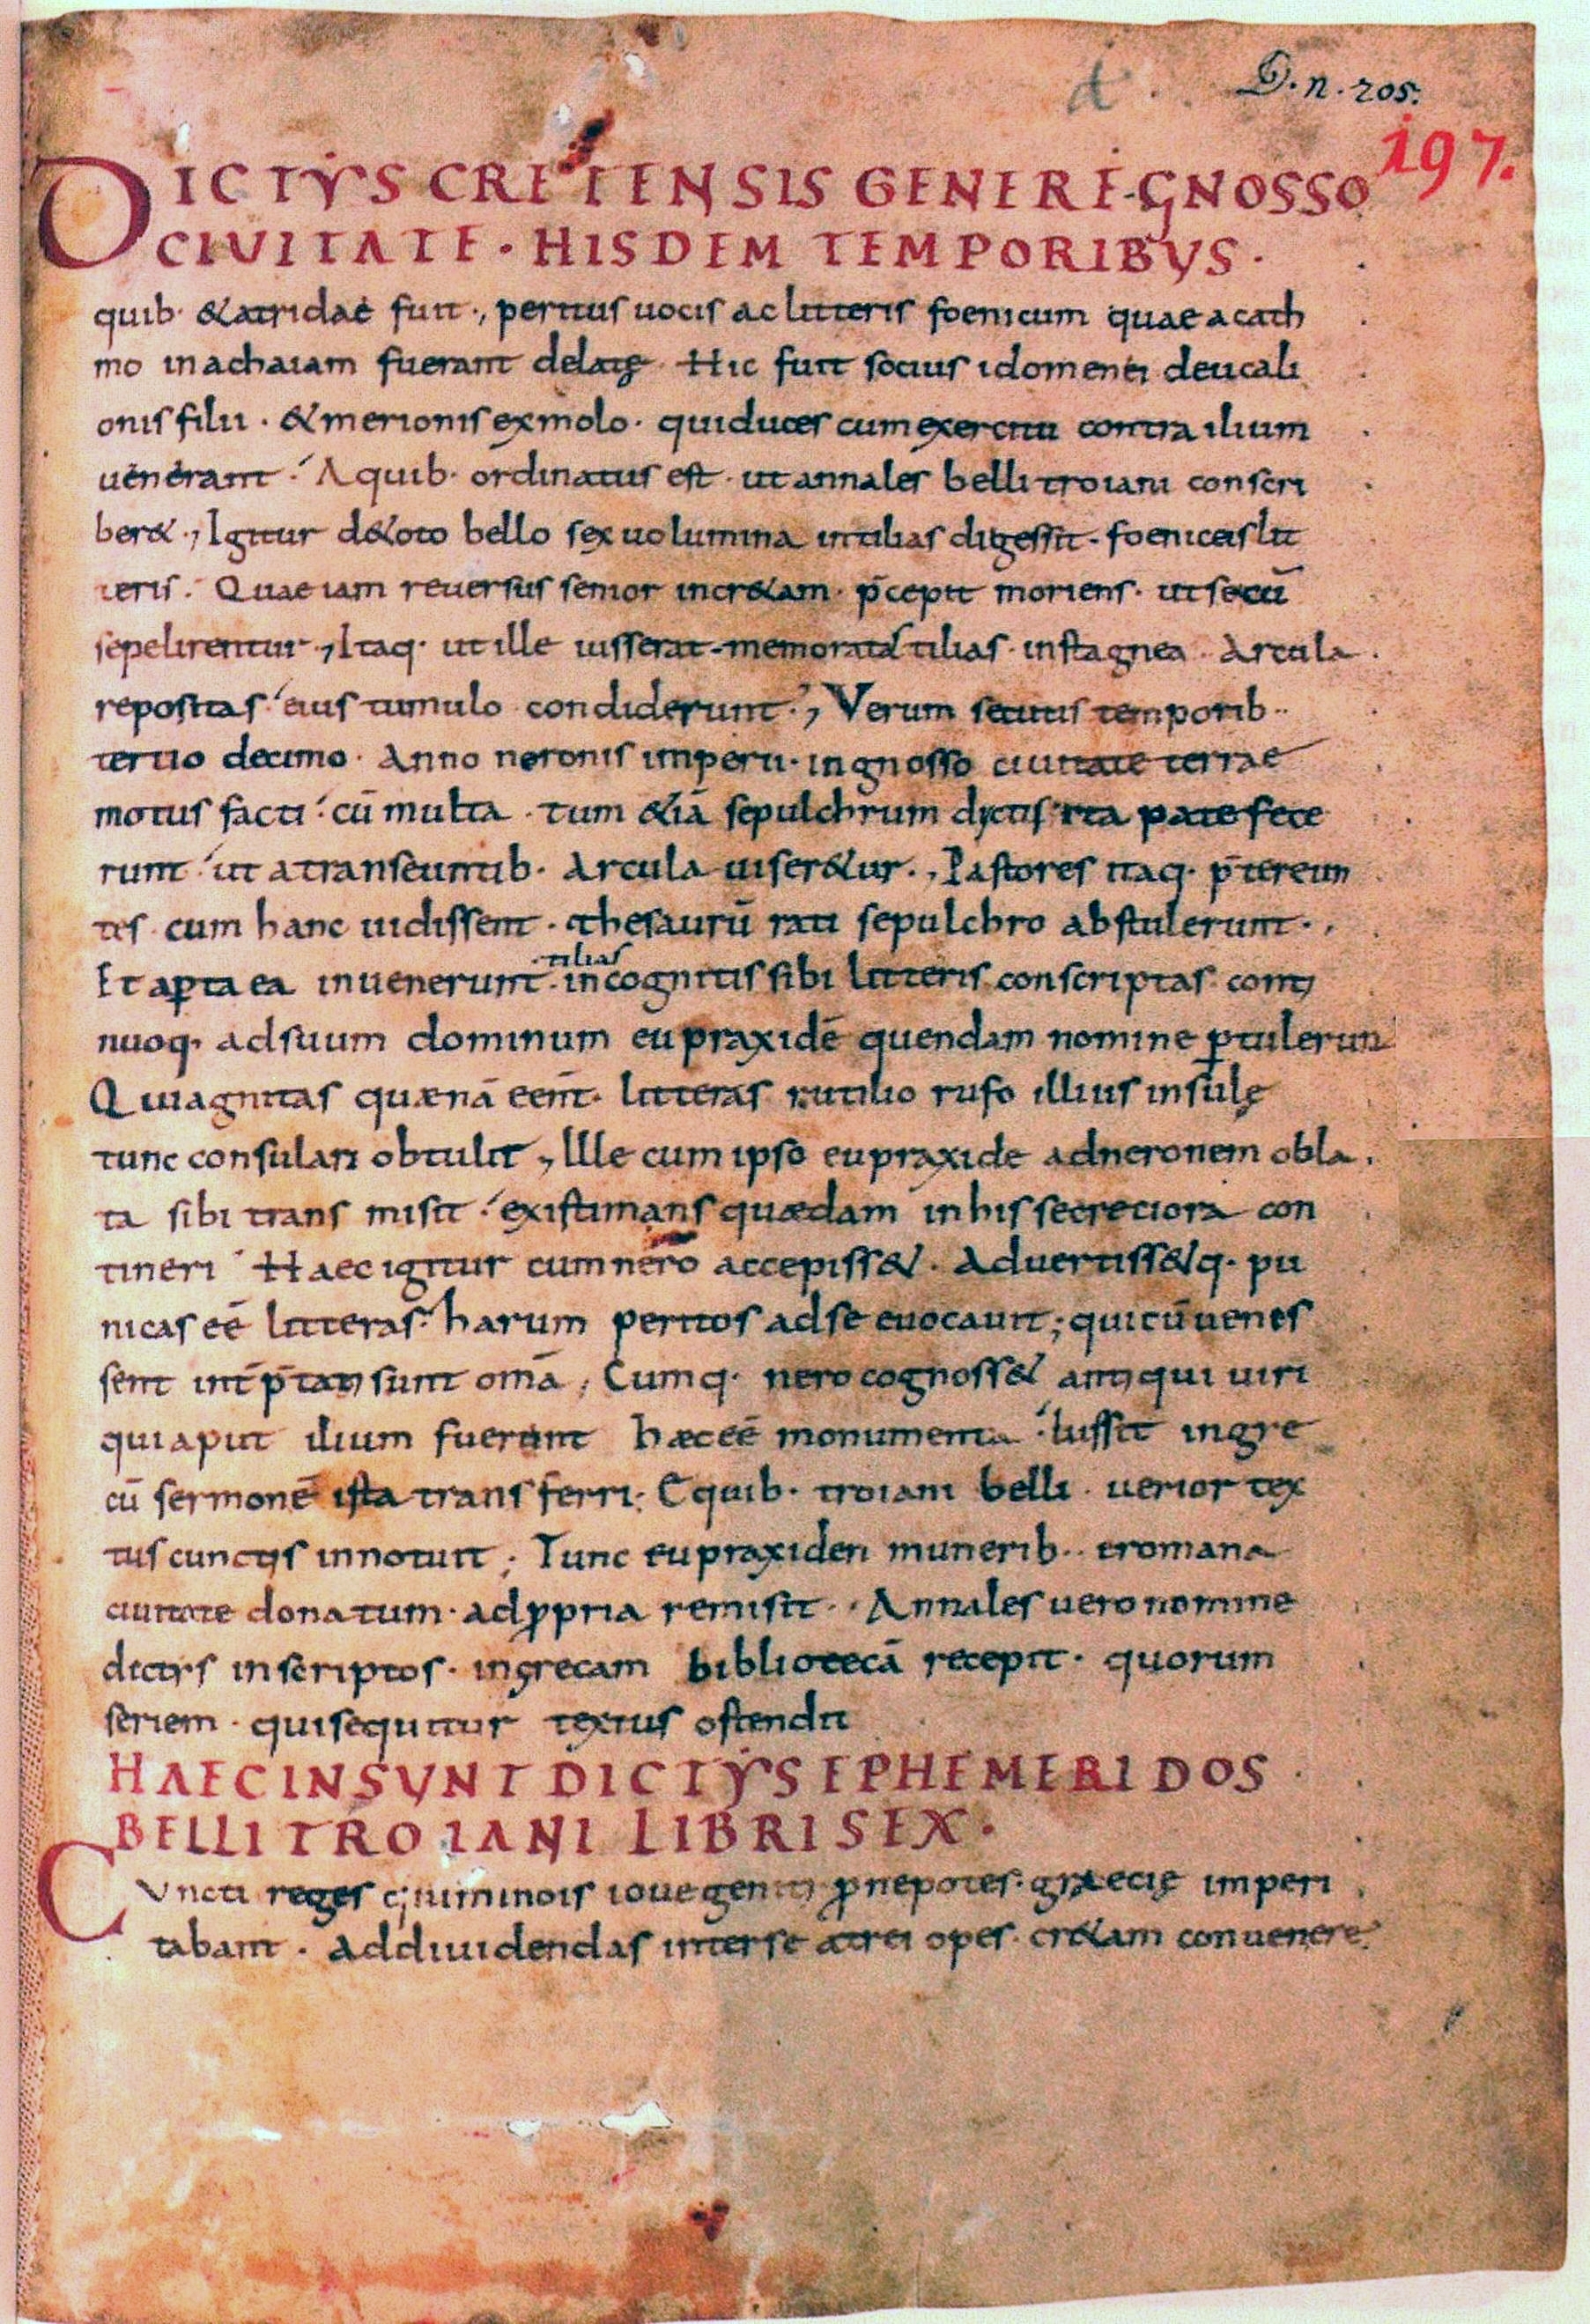 d.
D. n. 205.
197.
DICTYS CRETENSIS GENERE·GNOSSO
CIVITATE · HISDEM TEMPORIBVS ·
quib· &atridae fuit ·, peritus uocis ac litteris foenicum quae a cath
mo in achaiam fuerant delatę Hic fuit socius idomenei deucali
onis filii · & merionis ex molo · qui duces cum exercitu contra ilium
uenerant · A quib· ordinatus est · ut annales belli troiani conscri
ber& ·, Igitur d& oto bello sex uolumina in tilias digessit · foeniceis lit
teris · Quae iam reuersus senior in cr&am · p̄cepit moriens · ut secū
sepelirentur ·, Itaq· ut ille iusserat · memoratas tilias · in stagnea · Arcula ·
repositas eius tumulo condiderunt ·, Verum secutis temporib··
tertio decimo · Anno neronis imperii · in gnosso ciuitate terrae
motus facti · cū multa · tum &iā sepulchrum dyctis ita patefece
runt · ut a transeuntib· Arcula uiser&ur ·, Pastores itaq· p̄tereun
tes cum hanc uidissent · thesaurū rati sepulchro abstulerunt ·,
Et aꝑta ea inuenerunt · tilias incognitis sibi litteris conscriptas conti
nuoq· ad suum dominum eupraxidē quendam nomine ꝑtulerun
Qui agnitas quænā eēnt · litteras rutilio rufo illius insulę
tunc consulari obtulit ·, Ille cum ipso eupraxide ad neronem obla ·
ta sibi transmisit · existimans quædam in his secretiora con
tineri · Haec igitur cum nero accepiss& · Aduertiss&q· pu
nicas eē litteras · harum peritos ad se euocauit ; qui cū uenis
sent int̄p̄tati sunt omā ; Cumq· nero cognoss& antiqui uiri
qui aput ilium fuerant hæc eē monumenta · Iussit in gre
cū sermonē ista transferri ; E quib· troiani belli · uerior tex
tus cunctis innotuit ; Tunc eupraxiden munerib·· & romana
ciuitate donatum · ad ꝓpria remisit · · Annales uero nomine
dictis inscriptos · in grecam bibliotecā recepit · quorum
seriem · qui sequitur textus ostendit
HAEC INSVNT DICTYS EPHEMERIDOS
BELLI TROIANI LIBRI SEX ·
CVncti reges qui minois ioue geniti ꝓnepotes · græcię imperi ·
tabant · Ad diuidendas inter se atrei opes · cr&am conuenere ·